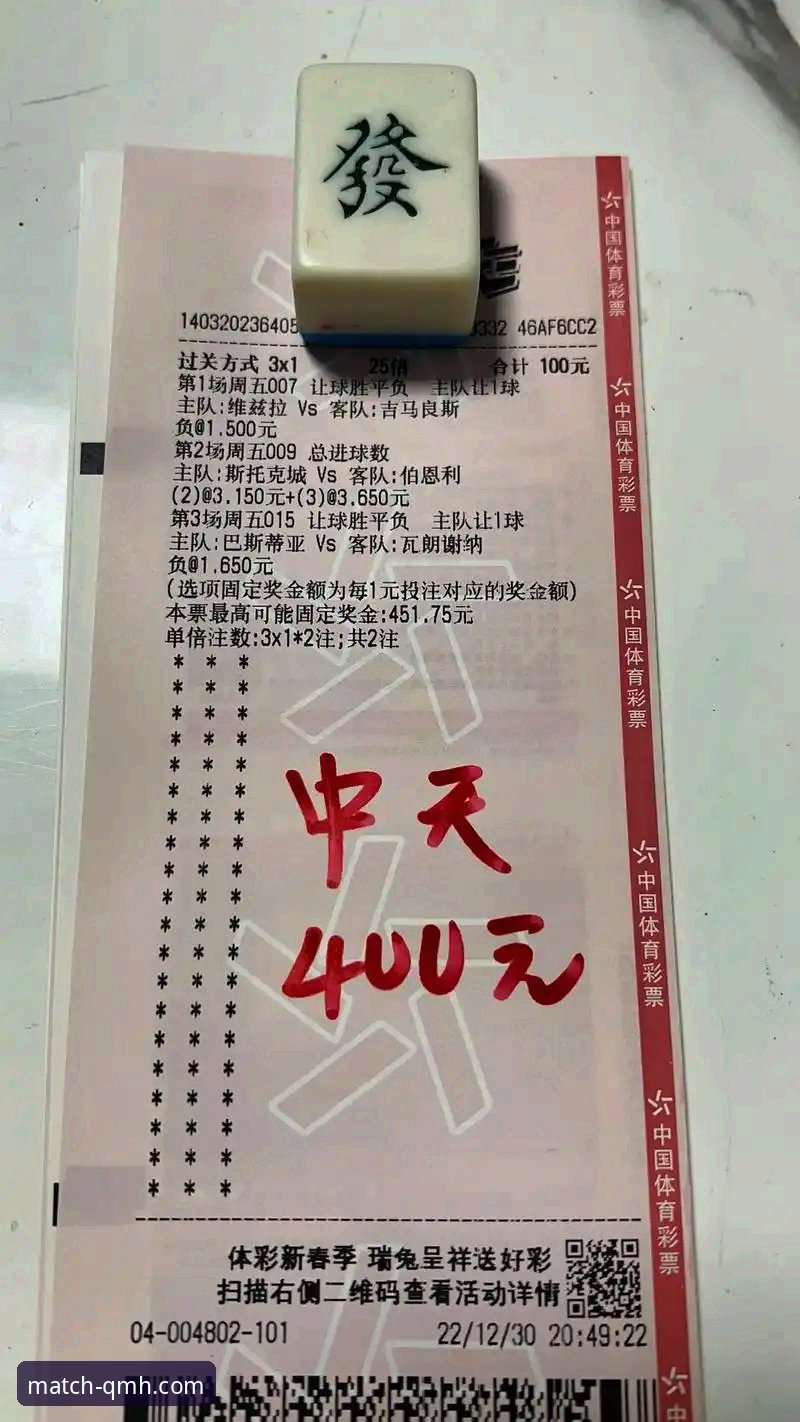 發
140320236405 332 46AF6CC2
过关方式 3x1 25倍 合计 100元
第1场周五007 让球胜平负 主队让1球
主队:维兹拉 Vs 客队:吉马良斯
负@1.500元
第2场周五009 总进球数
主队:斯托克城 Vs 客队:伯恩利
(2)@3.150元+(3)@3.650元
第3场周五015 让球胜平负 主队让1球
主队:巴斯蒂亚 Vs 客队:瓦朗谢纳
负@1.650元
(选项固定奖金额为每1元投注对应的奖金额)
本票最高可能固定奖金:451.75元
单倍注数:3x1*2注;共2注
* * *
* * *
* * *
* * *
* * *
* * *
* * *
* * *
* * *
* * *
* * *
* * *
* * *
* * *
* * *
* * *
* * *
* * *
* * *
* * *
中天
400元
体彩新春季 瑞兔呈祥送好彩
扫描右侧二维码查看活动详情
04-004802-101 22/12/30 20:49:22
中国体育彩票
中国体育彩票
中国体育彩票
中国体育彩票
中国体育彩票
中
match-qmh.com